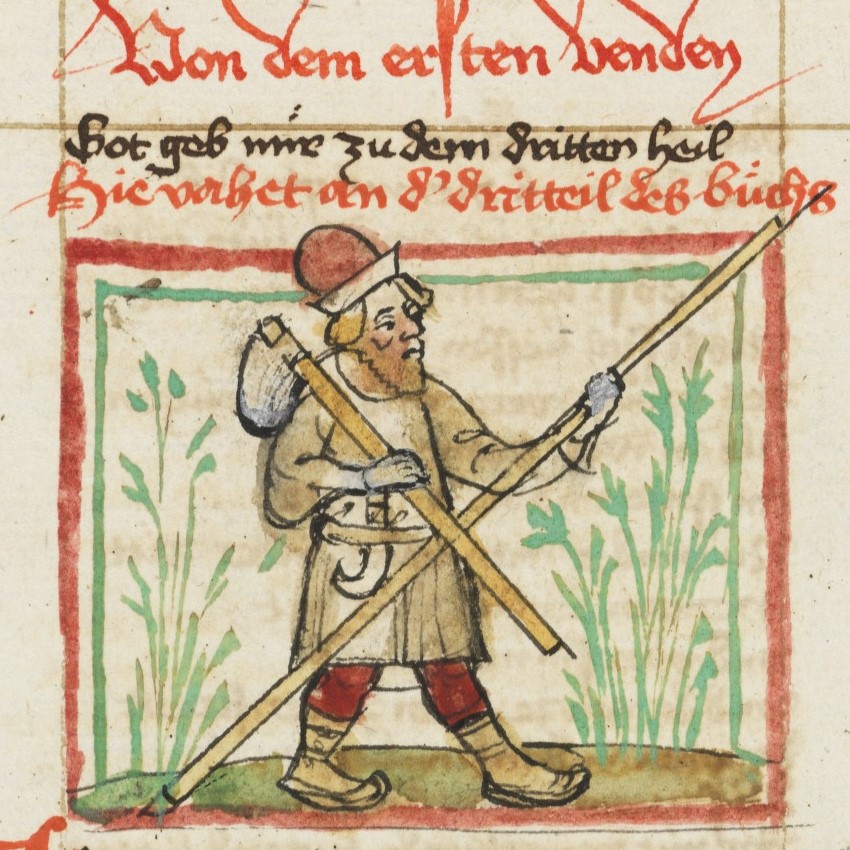 Von dem ersten venden
Got geb mir zu dem dritten heil
Hie vahet an d' dritteil des bůchs